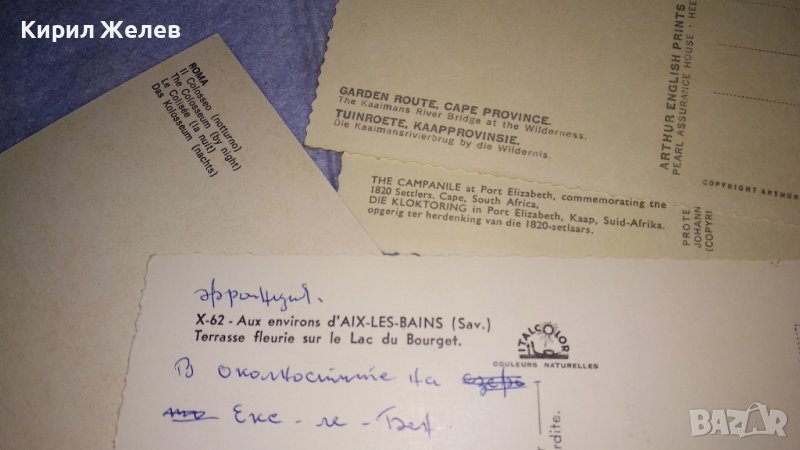 Кирил Желев
ROMA
Il Colosseo (notturno)
The Colosseum (by night)
Le Colisée (la nuit)
Das Kolosseum (nachts)
GARDEN ROUTE, CAPE PROVINCE.
The Kaaimans River Bridge at the Wilderness.
TUINROETE, KAAPPROVINSIE.
Die Kaaimansrivierbrug by die Wildernis.
ARTHUR ENGLISH PRINTS
PEARL ASSURANCE HOUSE · HEE
COPYRIGHT ARTHUR
THE CAMPANILE at Port Elizabeth, commemorating the
1820 Settlers, Cape, South Africa.
DIE KLOKTORING in Port Elizabeth, Kaap, Suid-Afrika.
opgerig ter herdenking van die 1820-setlaars.
PROTE
JOHANN
(COPYRI
Франция.
X-62 - Aux environs d'AIX-LES-BAINS (Sav.)
Terrasse fleurie sur le Lac du Bourget.
ITALCOLOR
COULEURS NATURELLES
В околностите на езеро
Екс - ле - Бен.
rdite.
BAZAR
bg